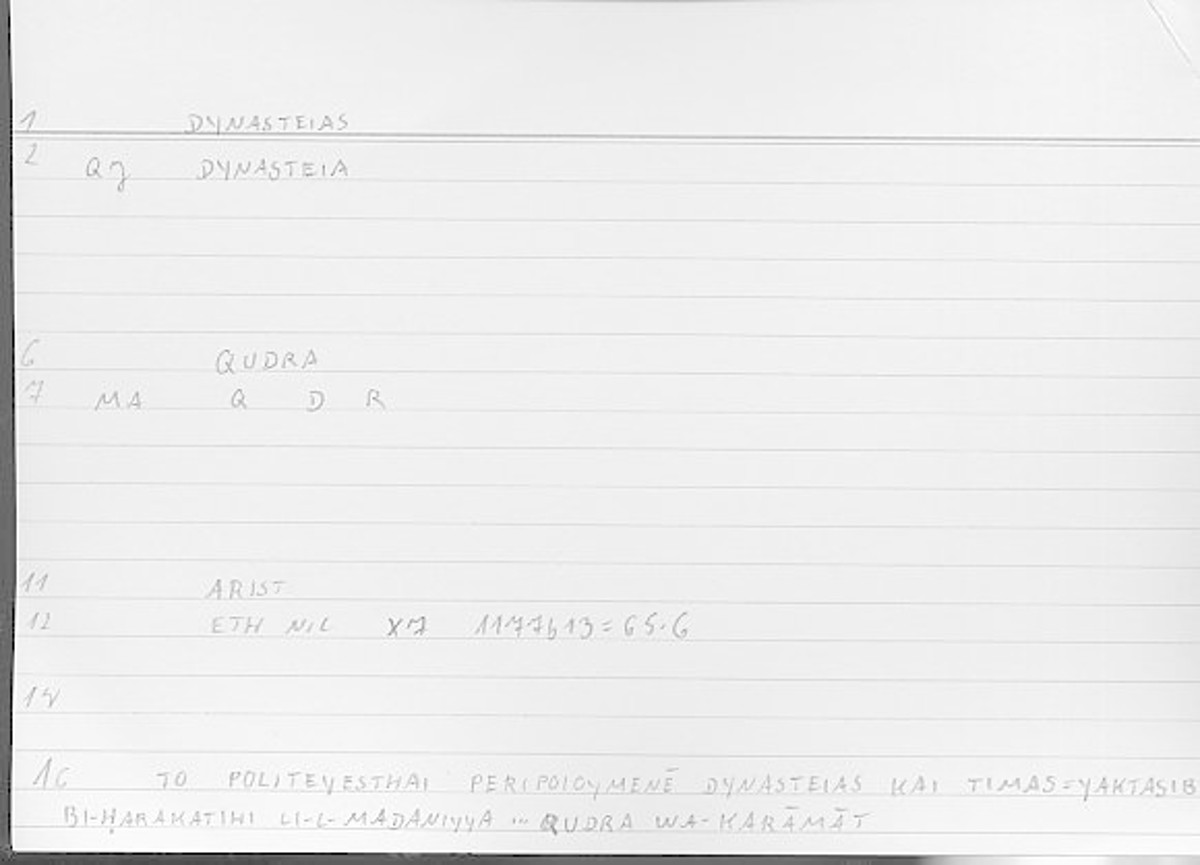 1 DYNASTEIAS
2 QJ DYNASTEIA
6 QUDRA
7 MA Q D R
11 ARIST
12 ETH NIC X7 1177b13=65.6
14
16 TO POLITEYESTHAI PERIPOIOYMENĒ DYNASTEIAS KAI TIMAS=YAKTASIB
BI-ḤARAKATIHI LI-L-MADANIYYA ... QUDRA WA-KARĀMĀT